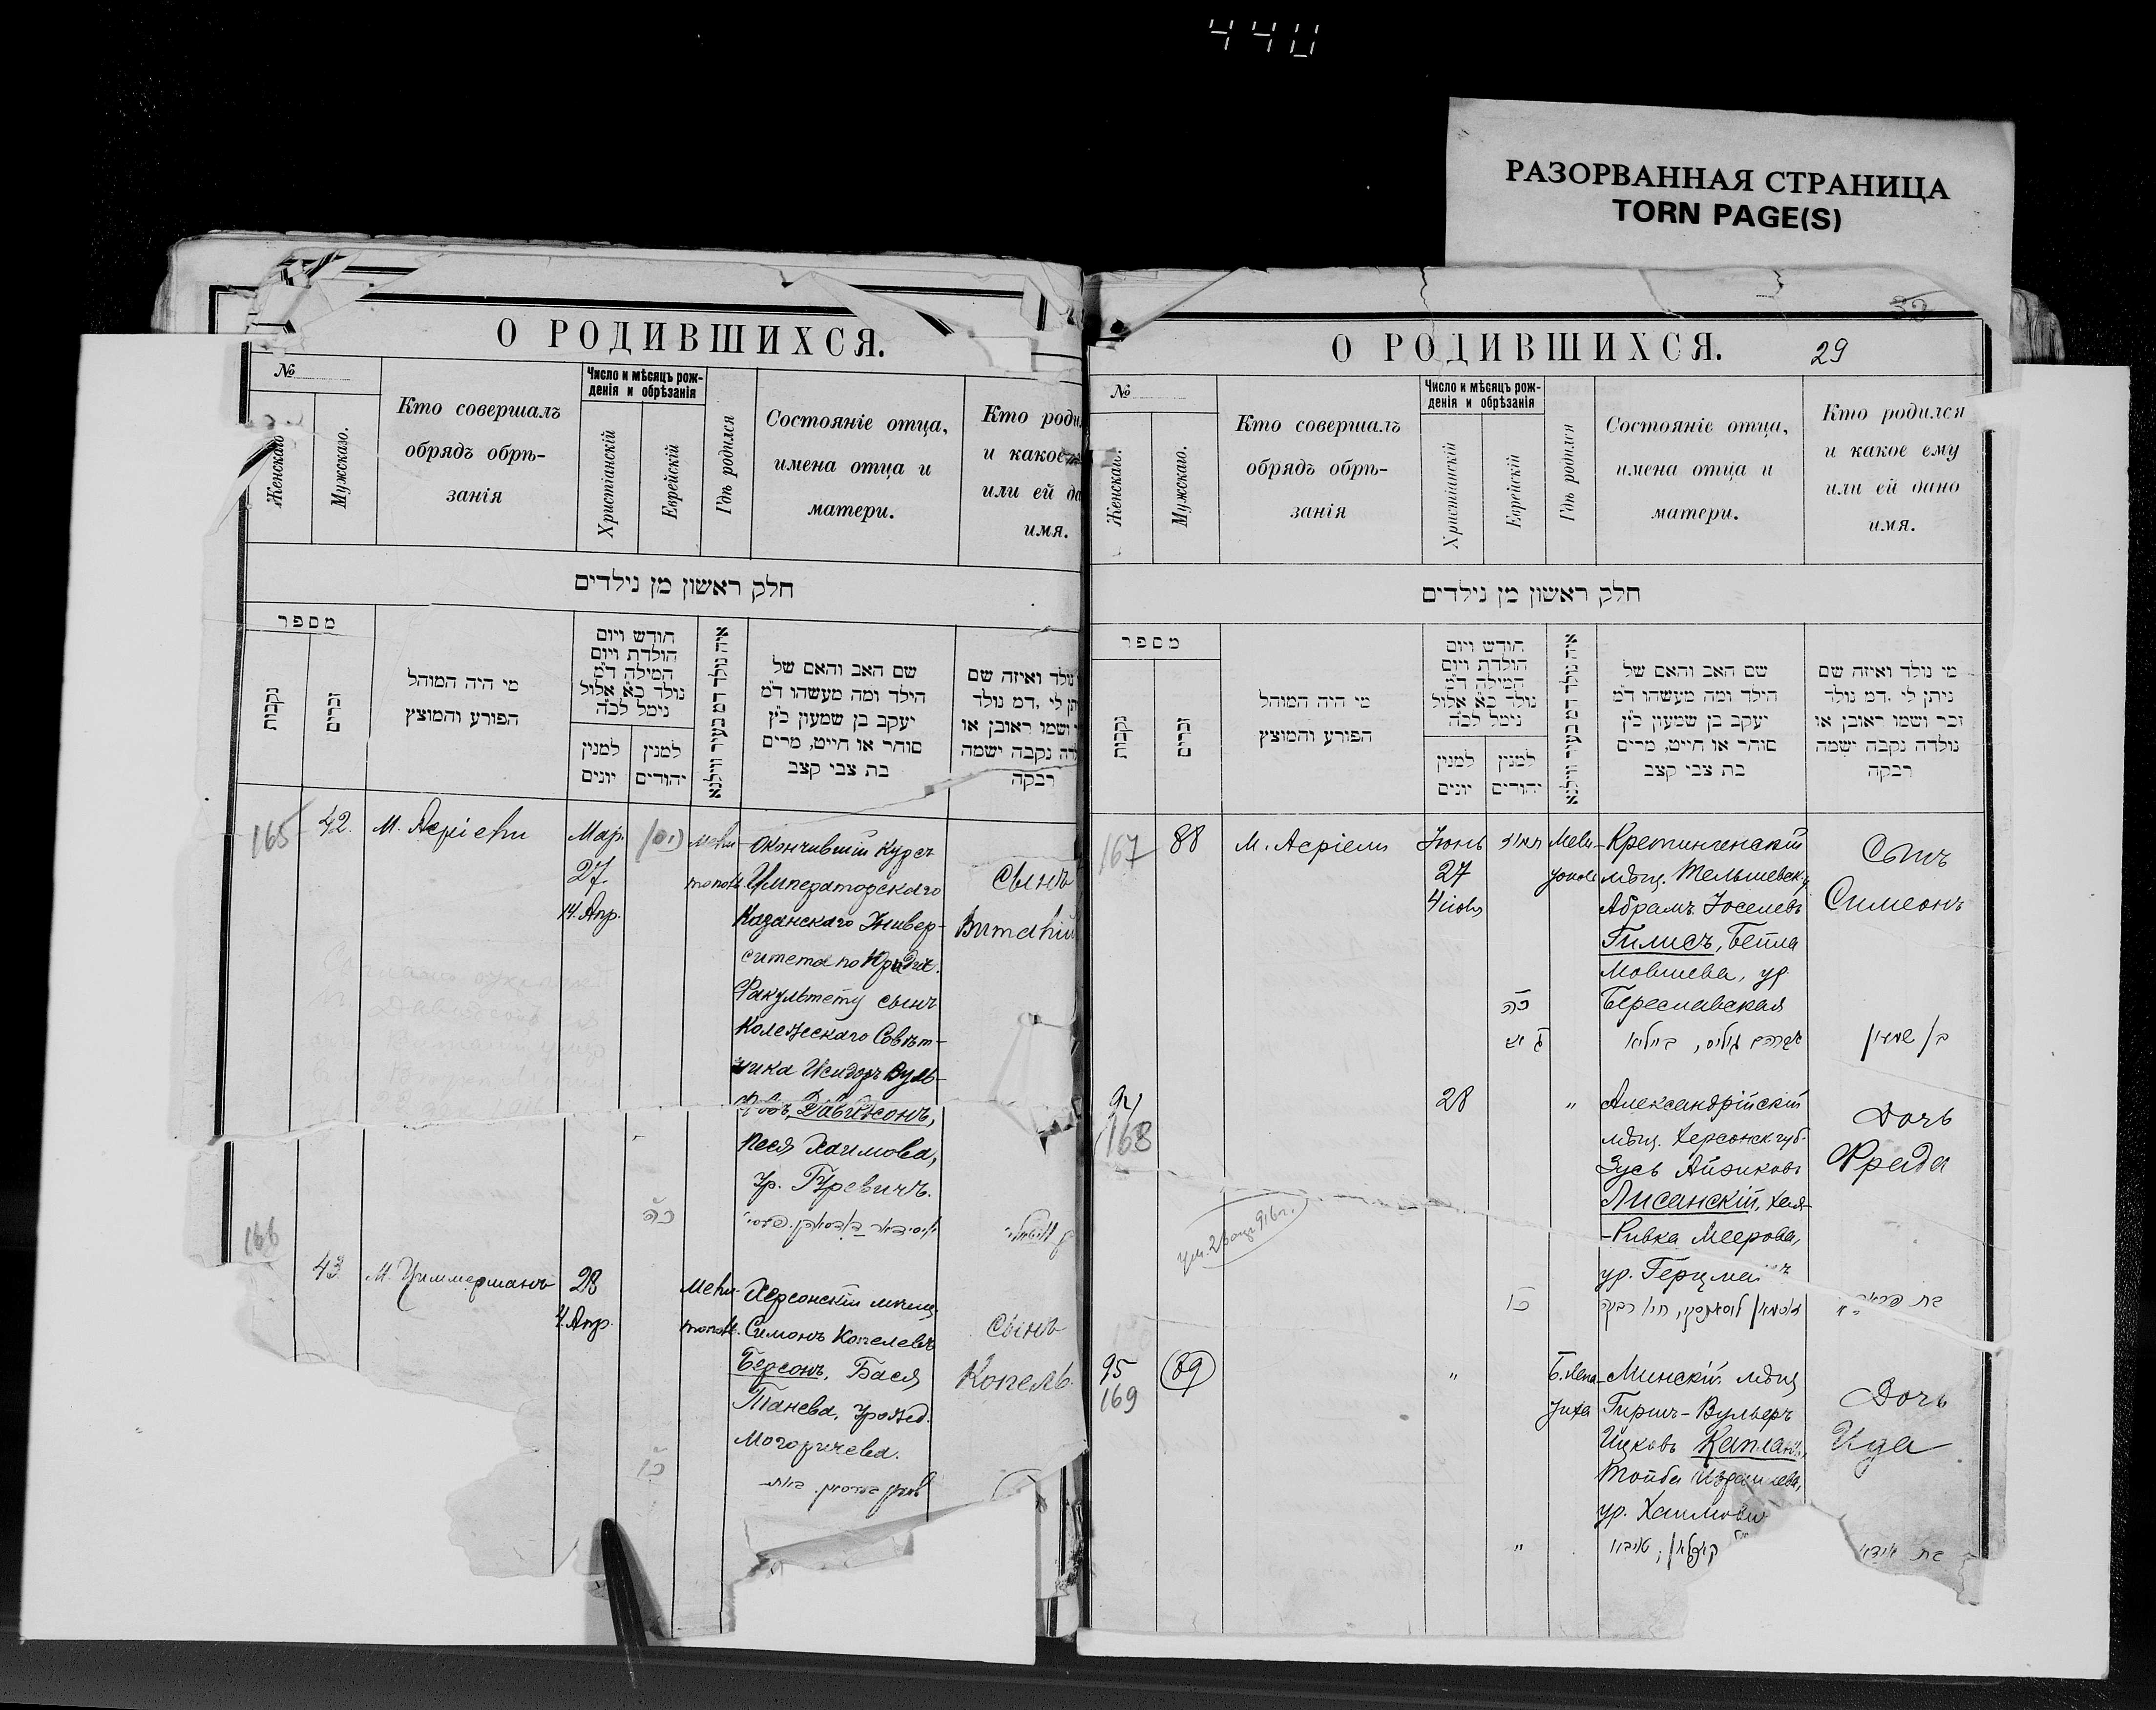 440
РАЗОРВАННАЯ СТРАНИЦА
TORN PAGE(S)
О РОДИВШИХСЯ.
№
Женскаго
Мужскаго.
Кто совершалъ
обрядъ обрѣ-
занія
Число и мѣсяцъ рож-
денія и обрѣзанія
Христіанскій
Еврейскій
Гдѣ родился
Состояніе отца,
имена отца и
матери.
Кто роди
и какое
или ей да
имя.
חלק ראשון מן נילדים
מספר
נקבות
זכרים
מי היה המוהל
הפורע והמוצץ
חודש ויום
הולדת ויום
המילה ד״מ
נולד כ״א אלול
נימל לכ״ה
למנין
יונים
למנין
יהודים
איה נולד דמ בעיר ווילנא
שם האב והאם של
הילד ומה מעשהו ד״מ
יעקב בן שמעון כ״ץ
סוחר או חייט, מרים
בת צבי קצב
נולד ואיזה שם
תן לי .דמ נולד
ושמו ראובן או
דה נקבה ישמה
רבקה
165
42.
М. Асріели
Мар.
27.
14. Апр.
Окончившій курсъ
Императорскаго
Казанскаго Универ-
ситета по Юридич.
Факультету сынъ
Колежскаго Совѣт-
ника Исидоръ Вуль-
фовъ, Давидсонъ,
Песя Хаимова,
ур. Гуревичъ.
Сынъ
Виталій
כה
166
43
М. Циммерманъ
28
4. Апр.
Херсонскій мѣщ.
Симонъ Копелевъ
Берсонъ, Бася
Танева, урожд.
Могоричева.
Сынъ
Копель.
О РОДИВШИХСЯ.
29
№
Женскаго.
Мужскаго.
Кто совершалъ
обрядъ обрѣ-
занія
Число и мѣсяцъ рож-
денія и обрѣзанія
Христіанскій
Еврейскій
Гдѣ родился
Состояніе отца,
имена отца и
матери.
Кто родился
и какое ему
или ей дано
имя.
חלק ראשון מן נילדים
מספר
נקבות
זכרים
מי היה המוהל
הפורע והמוצץ
חודש ויום
הולדת ויום
המילה ד״מ
נולד כ״א אלול
נימל לכ״ה
למנין
יונים
למנין
יהודים
איה נולד דמ בעיר ווילנא
שם האב והאם של
הילד ומה מעשהו ד״מ
יעקב בן שמעון כ״ץ
סוחר או חייט, מרים
בת צבי קצב
מי נולד ואיזה שם
ניתן לי .דמ נולד
זכר ושמו ראובן או
נולדה נקבה ישמה
רבקה
167
88
М. Асріели
Іюнь
27
4 іюля
תמוז
כה
Кретингенскій
мѣщ. Тельшевск. у
Абрамъ Іоселевъ
Гилисъ, Бейла
Мовшева, ур.
Береславская
Сынъ
Симеонъ
בן שמעון
94
168
28
"
Александрійскій
мѣщ. Херсонск. губ.
Зусь Айзиковъ
Лисанскій, Хая-
-Ривка Меерова,
ур. Герцма
Дочь
Фреда
95
169
89
"
Минскій мѣщ
Гиршъ-Вульфъ
Ицковъ Капланъ,
Тойба Израилева,
ур. Хаимови
Дочь
Ида
"
בת אידא